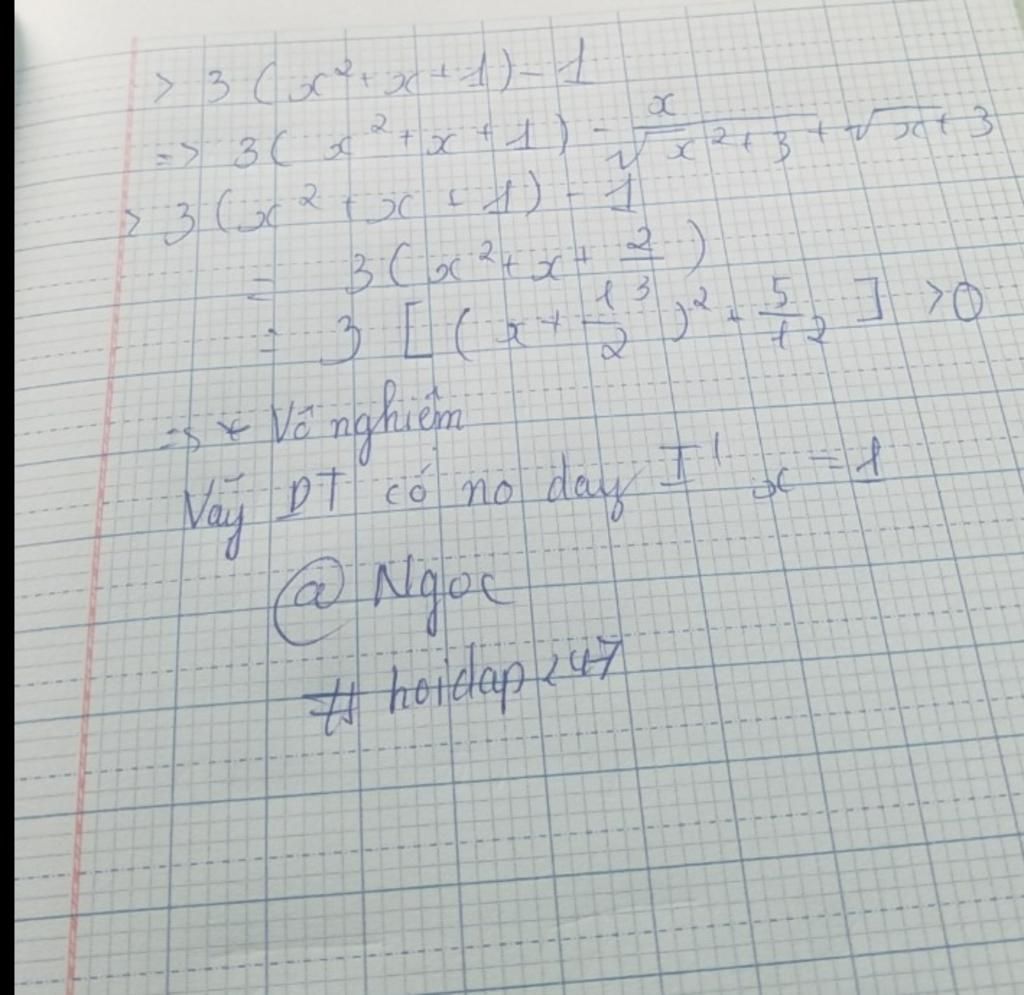 > 3 ( x² + x + 1 ) - 1
=> 3 ( x² + x + 1 ) - x / √x² + 3 + √x + 3
> 3 ( x² + x + 1 ) - 1
= 3 ( x² + x + 2/3 )
= 3 [ ( x + 1/2 )² + 5/12 ] > 0
=> * Vô nghiệm
Vậy PT có no day I' x = 1
@ Ngoc
# hoidap247